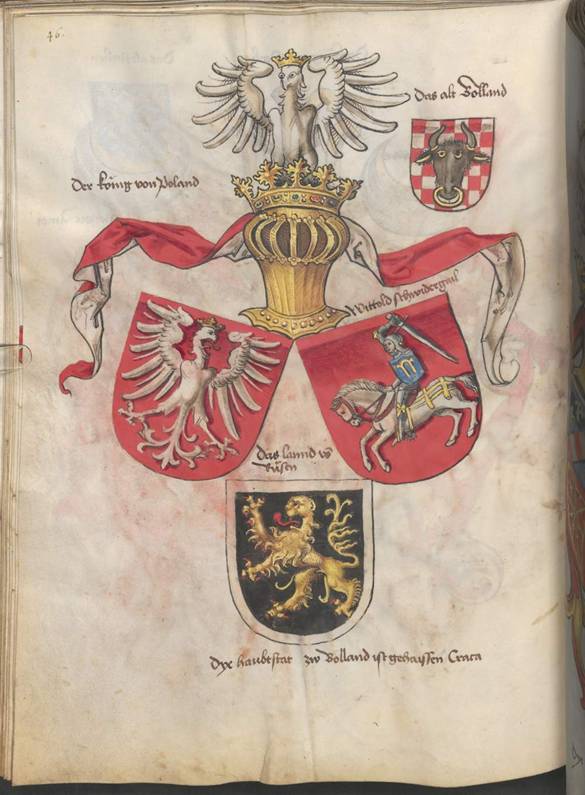 46.
Das alt Bolland
Der könig von Poland
Wittold schwidergail
Das lannd vs
Rüsen
Dye haubtstat zw Bolland ist gehaissen Craca